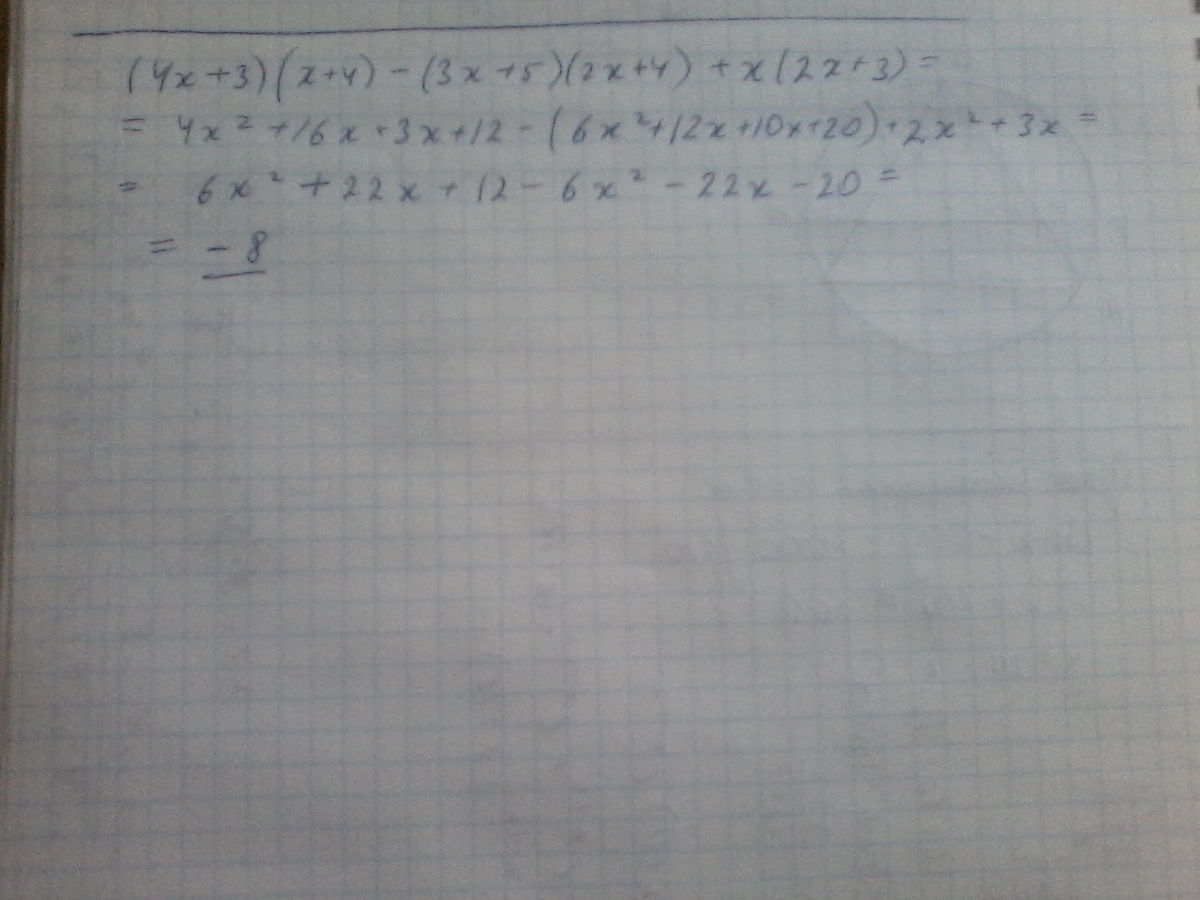 (4x+3)(x+4)-(3x+5)(2x+4)+x(2x+3)=
= 4x²+16x+3x+12-(6x²+12x+10x+20)+2x²+3x=
= 6x²+22x+12-6x²-22x-20=
= -8